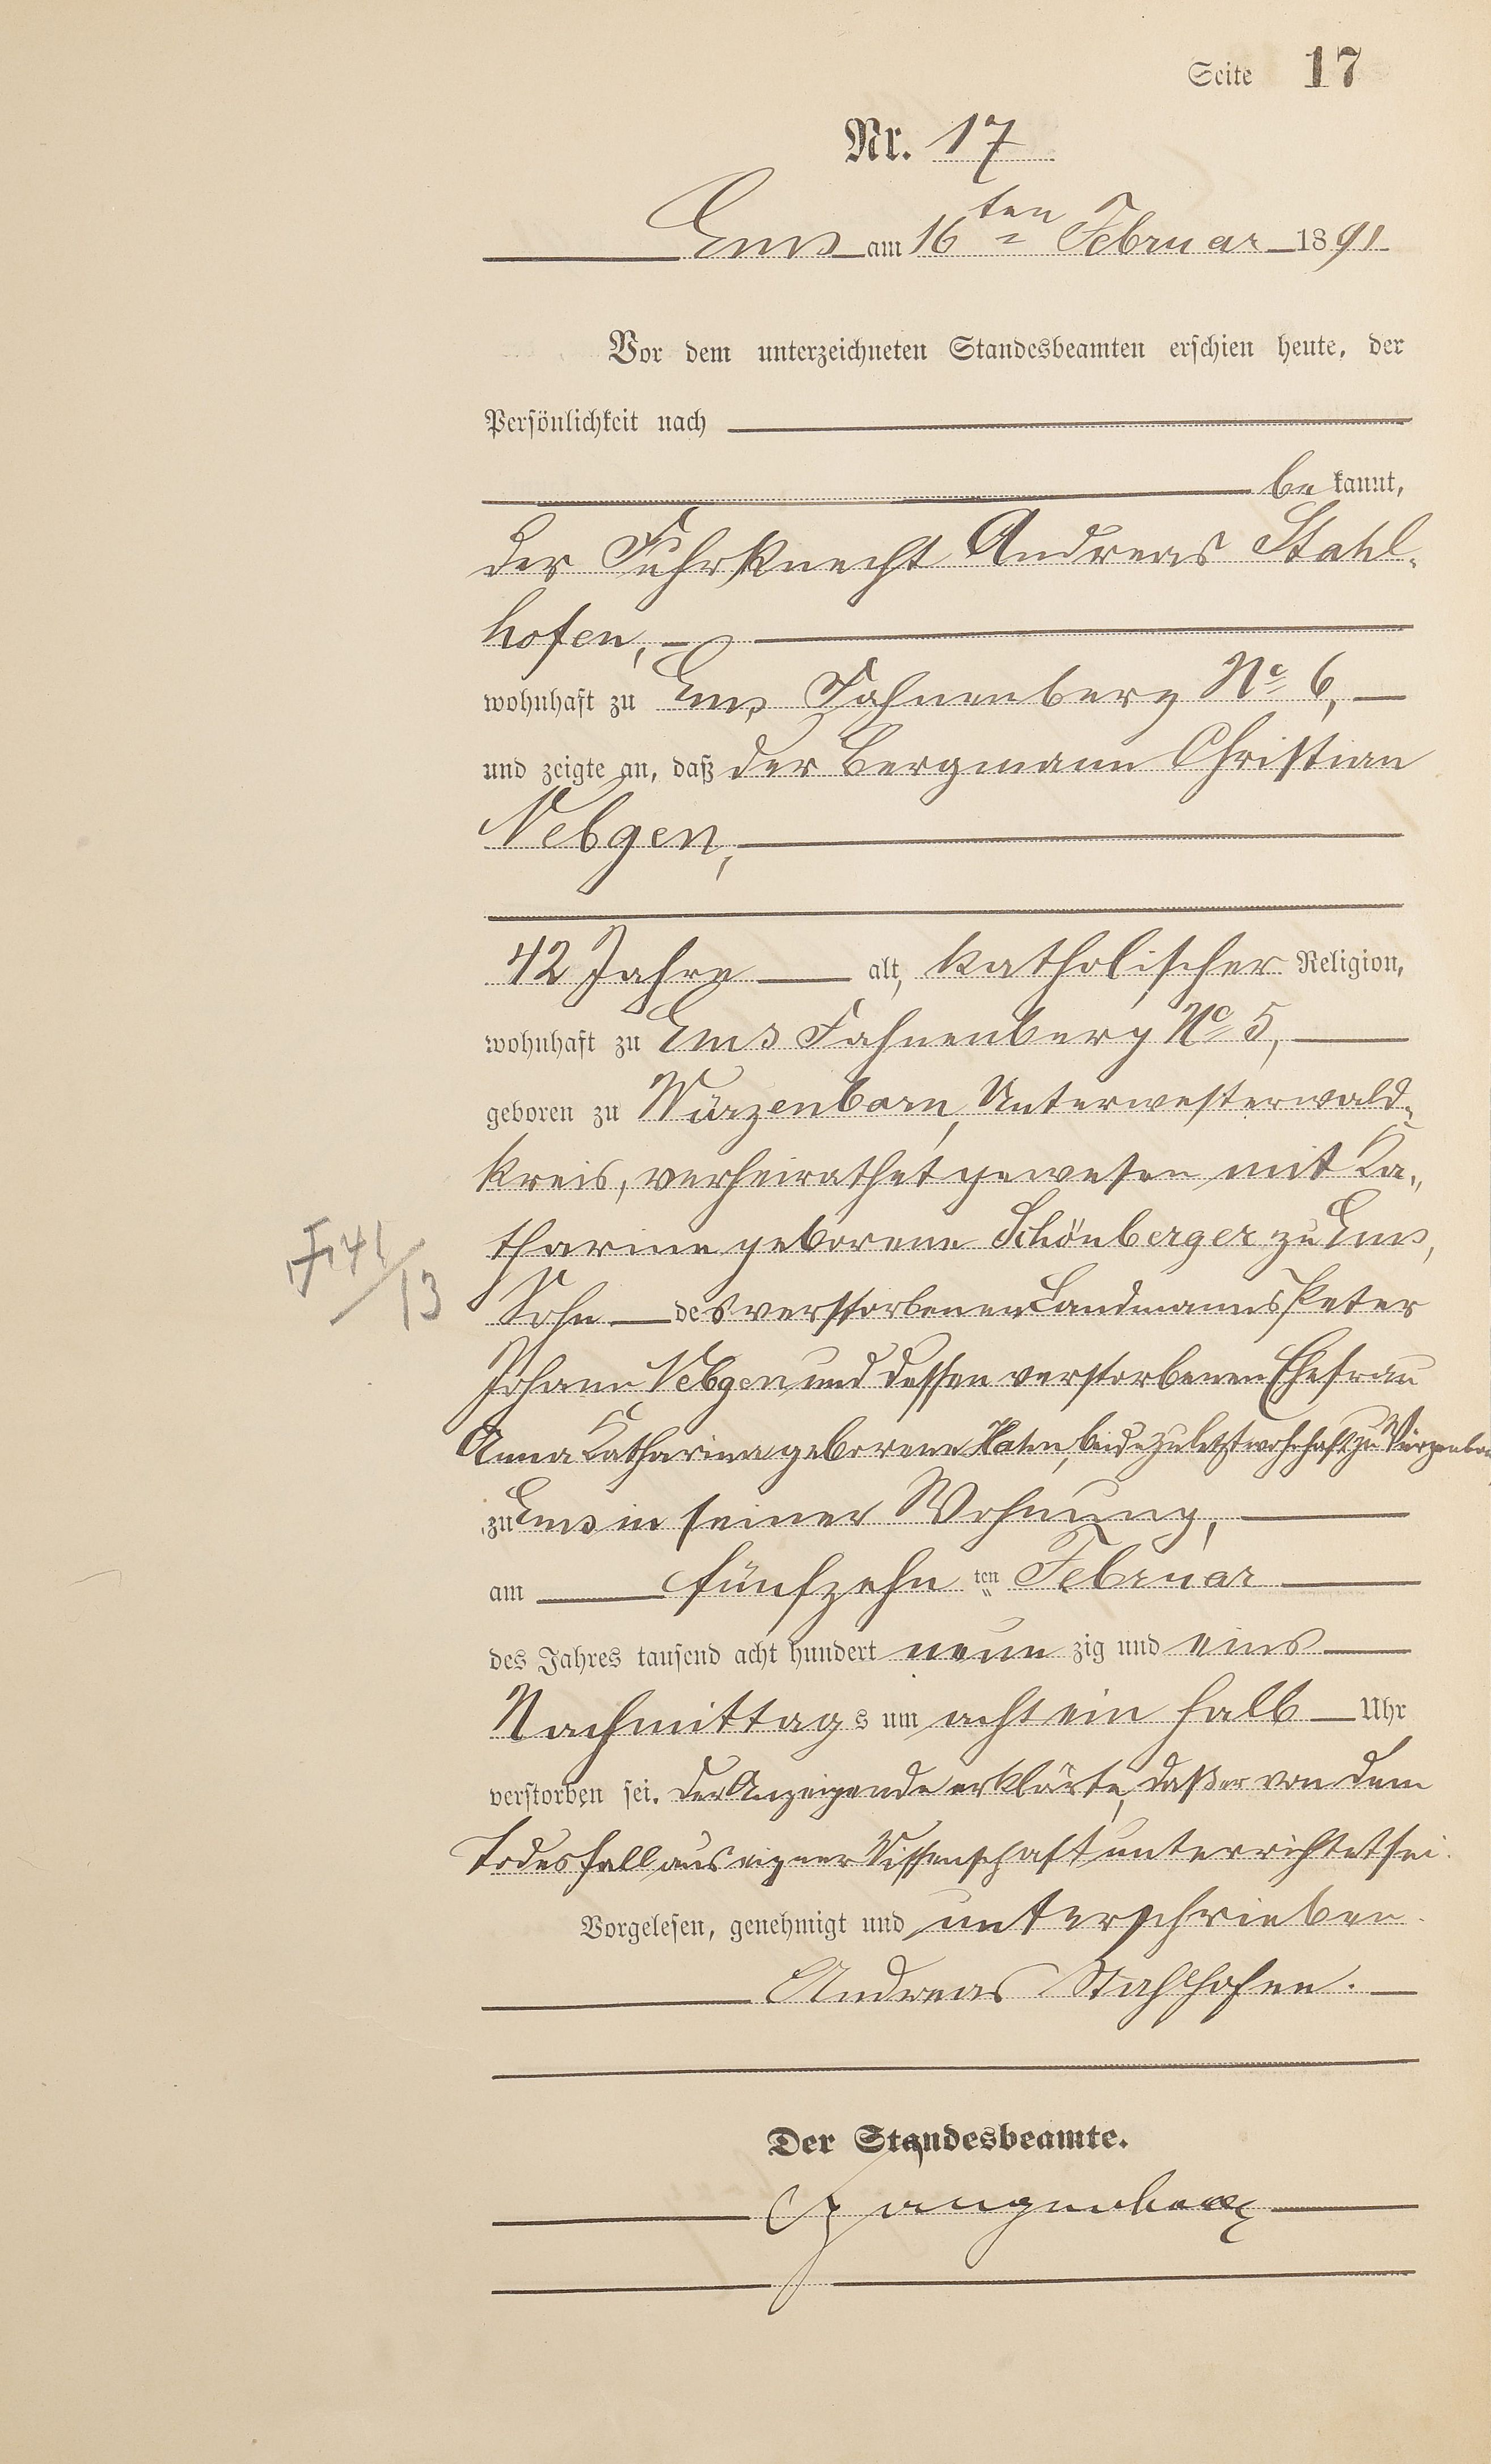 Seite 17
Nr. 17
Ems am 16ten Februar 1891
Vor dem unterzeichneten Standesbeamten erschien heute, der
Persönlichkeit nach
bekannt,
der Fuhrknecht Andreas Stahl-
hofen,
wohnhaft zu Ems, Fahnenberg No 6,
und zeigte an, daß der Bergmann Christian
Nebgen,
42 Jahre alt, katholischer Religion,
wohnhaft zu Ems Fahnenberg No 5,
geboren zu Wirzenborn, Unterwesterwald-
kreis, verheirathet gewesen mit Ka-
tharine geborene Schönberger zu Ems,
Sohn des verstorbenen Landmanns Peter
Johann Nebgen und dessen verstorbenen Ehefrau
Anna Katharina geborene beide zuletzt wohnhaft zu Wirzenborn
zu Ems in seiner Wohnung,
am fünfzehnten Februar
des Jahres tausend acht hundert neunzig und eins
Nachmittags um acht ein halb Uhr
verstorben sei. Der Anzeigende erklärte, daß er von dem
Todesfall aus eigner Wissenschaft unterrichtet sei.
Vorgelesen, genehmigt und unterschrieben.
Andreas Stahlhofen.
Der Standesbeamte.
F 41/13